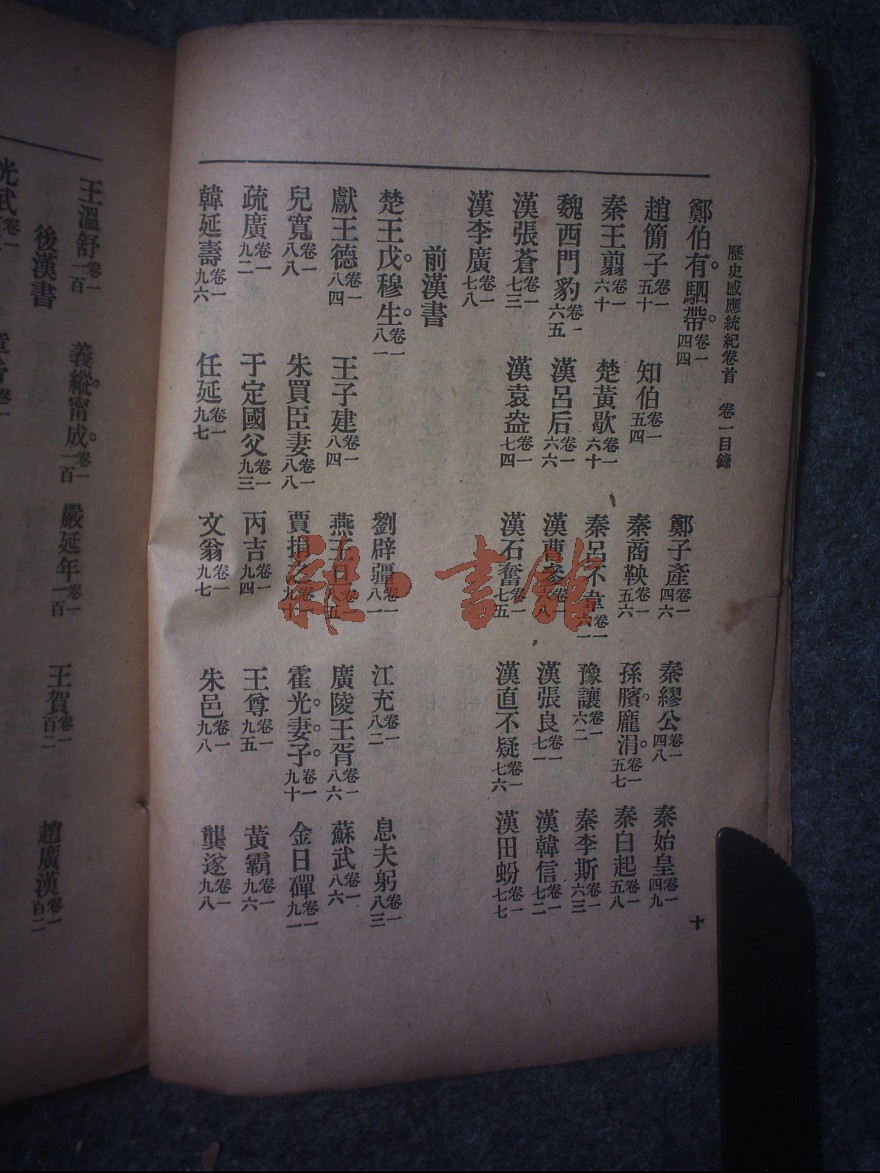 歷史感應統紀卷首 卷一目錄 十
鄭伯有。駟帶。卷一四四 鄭子產卷一四六 秦繆公卷一四八 秦始皇卷一四九
趙簡子卷一五十 知伯卷一五四 秦商鞅卷一五六 孫臏。龐涓。卷一五七 秦白起卷一五八
秦王翦卷一六十 楚黃歇卷一六十 秦呂不韋卷一六一 豫讓卷一六二 秦李斯卷一六三
魏西門豹卷一六五 漢呂后卷一六六 漢曹參卷一 漢張良卷一七一 漢韓信卷一七二
漢張蒼卷一七三 漢袁盎卷一七四 漢石奮卷一七五 漢直不疑卷一七六 漢田蚡卷一七七
漢李廣卷一七八
前漢書
楚王戊。穆生。卷一八一 劉辟疆卷一八一 江充卷一八二 息夫躬卷一八三
獻王德卷一八四 王子建卷一八四 燕王旦卷一八五 廣陵王胥卷一八六 蘇武卷一八六
兒寬卷一八八 朱買臣妻卷一八八 賈捐之卷一九十 霍光。妻。子。卷一九十 金日磾卷一九一
疏廣卷一九二 于定國父卷一九三 丙吉卷一九四 王尊卷一九五 黃霸卷一九六
韓延壽卷一九六 任延卷一九七 文翁卷一九七 朱邑卷一九八 龔遂卷一九八
王溫舒卷一一百 義縱。甯成。卷一一百 嚴延年卷一一百 王賀卷一百二 趙廣漢卷一百二
後漢書
光武卷一
雜·書館